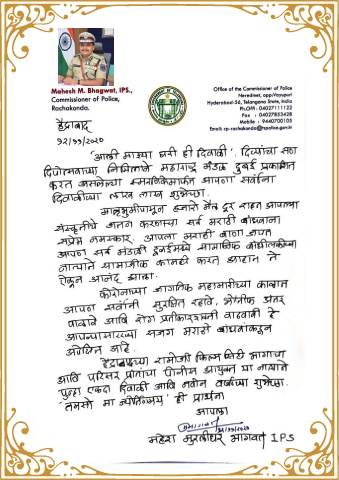 Mahesh M. Bhagwat, IPS.,
Commissioner of Police,
Rachakonda.
Office of the Commissioner of Police
Neredmet, opp:Vayupuri
Hyderabad-56, Telangana State, India
Ph.Off : 04027111122
Fax : 04027853428
Mobile : 9440700105
Email: cp-rachakonda@tspolice.gov.in
हैद्राबाद
१२/११/२०२०
'आली माझ्या घरी ही दिवाळी'. दिव्यांचा सण
दिपोत्सवाच्या निमित्ताने महाराष्ट्र मंडळ दुबई प्रकाशित
करत असलेल्या स्मरणिकेमार्फत आपणा सर्वांना
दिवाळीच्या लाख लाख शुभेच्छा.
मातृभूमीपासून हजारो मैल दूर राहून आपल्या
संस्कृतीचे जतन करणाऱ्या सर्व मराठी बांधवांना
सप्रेम नमस्कार. आपला मराठी बाणा जपत
आपण सर्व मंडळी दुबईमध्ये सामाजिक बांधीलकीच्या
नात्याने सामाजीक कामही करत आहात ते
ऐकून आनंद झाला.
कोरोनाच्या जागतिक महामारीच्या काळात
आपण सर्वांनी सुरक्षित रहावे, भौगोलिक अंतर
पाळावे आणि रोग प्रतिकारशक्ती वाढवावी हे
आपल्यासारख्या सजग मराठी बांधवांकडून
अपेक्षित आहे.
हैद्राबादच्या रामोजी फिल्म सिटी भागाचा
आणि परिसर प्रांताचा पोलीस आयुक्त या नात्याने
पुन्हा एकदा दिवाळी आणि नवीन वर्षाच्या शुभेच्छा.
'तमसो मा ज्योतिर्गमय' ही प्रार्थना
आपला
१२/११/२०२०
महेश मुरलीधर भागवत I.P.S